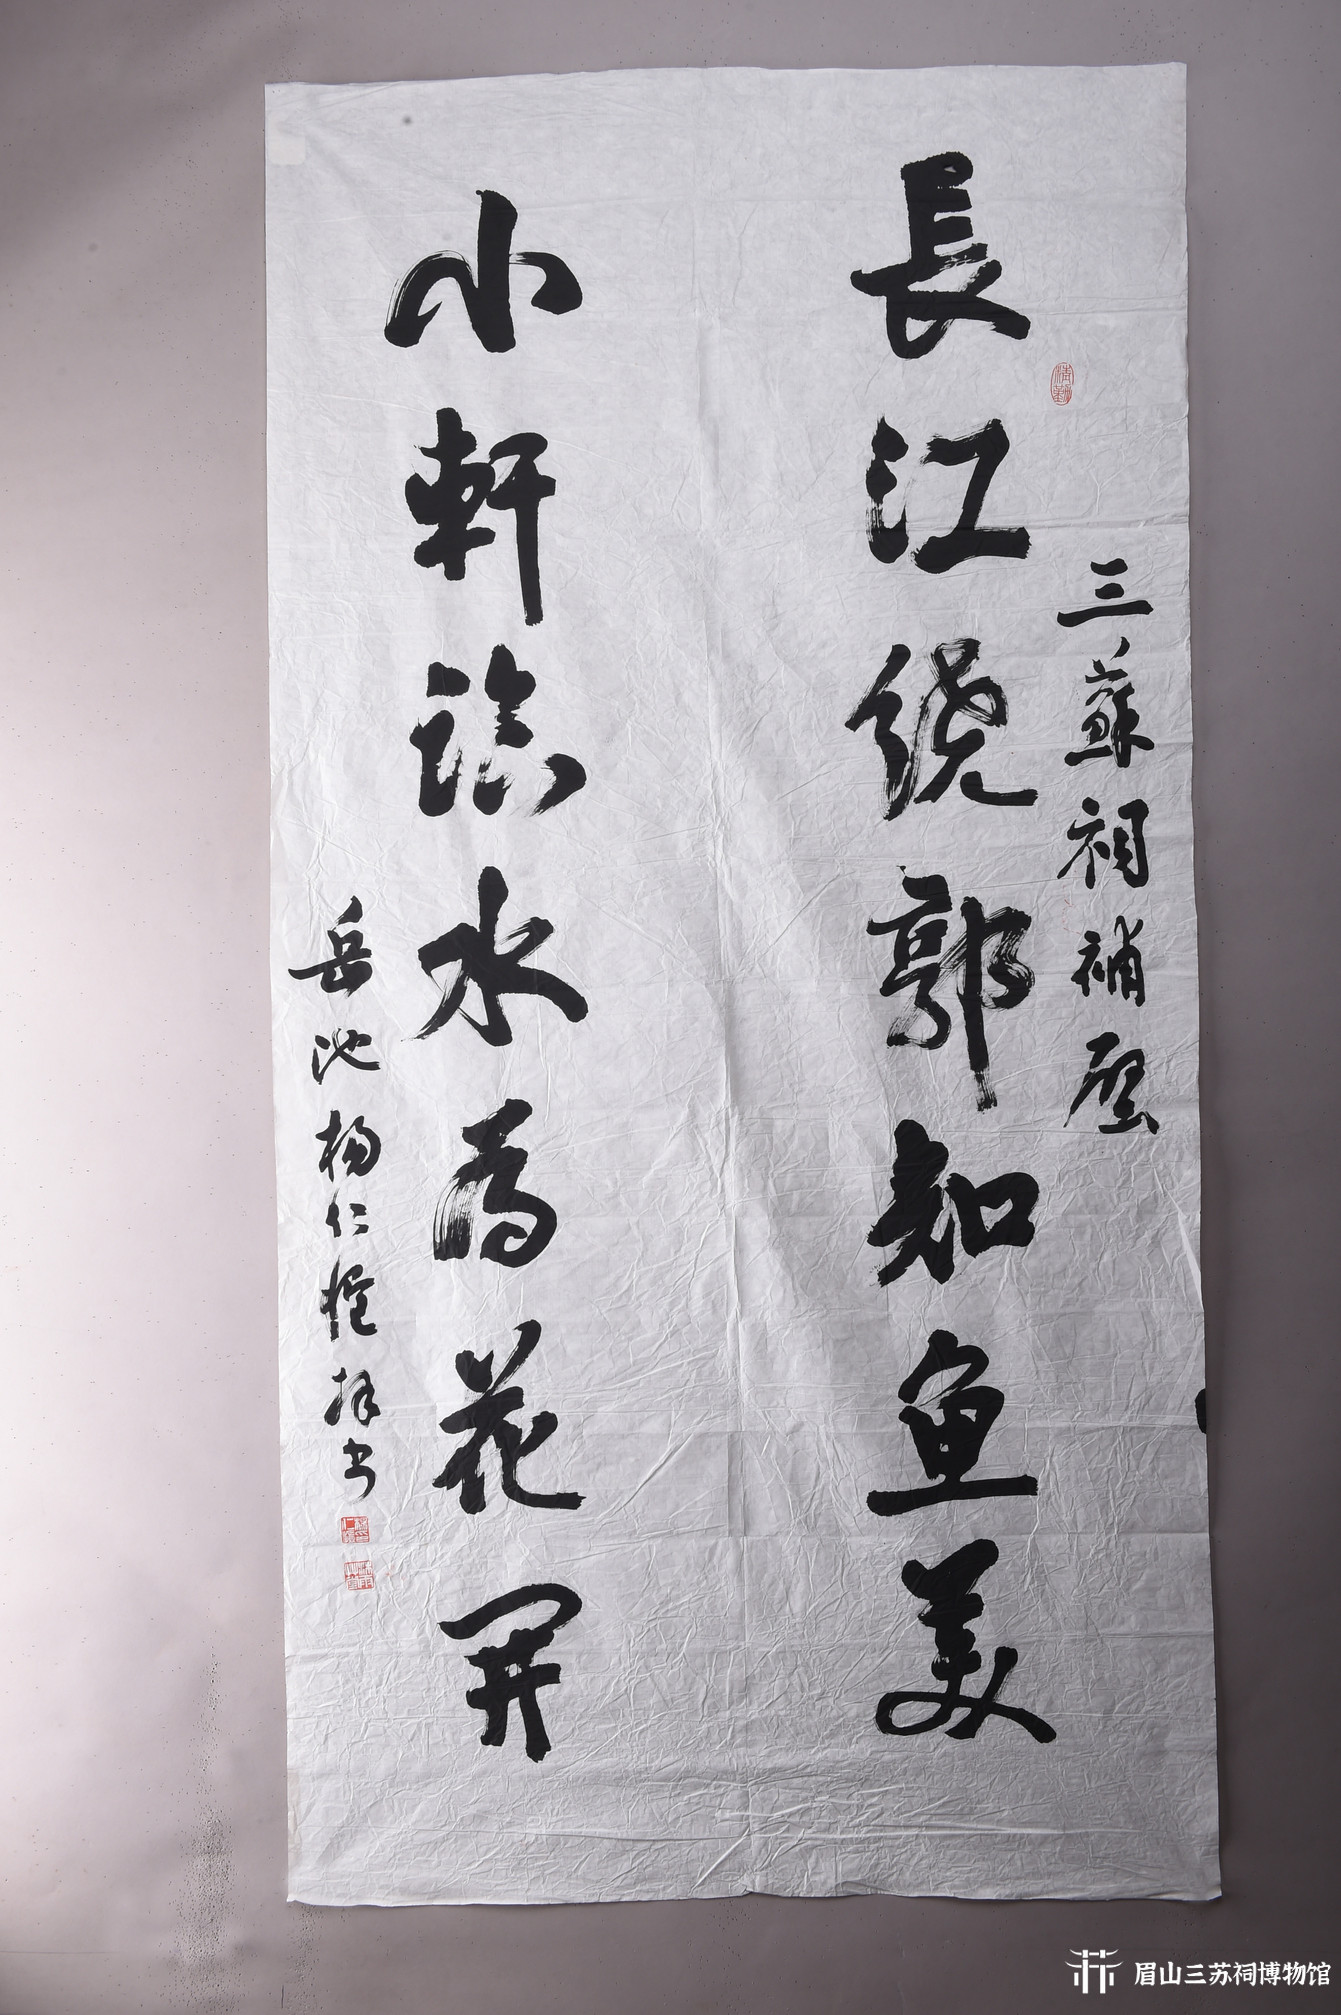 三蘇祠補壁
長江绕郭知鱼美
小軒臨水為花開
岳池楊仁愷拜书
眉山三苏祠博物馆